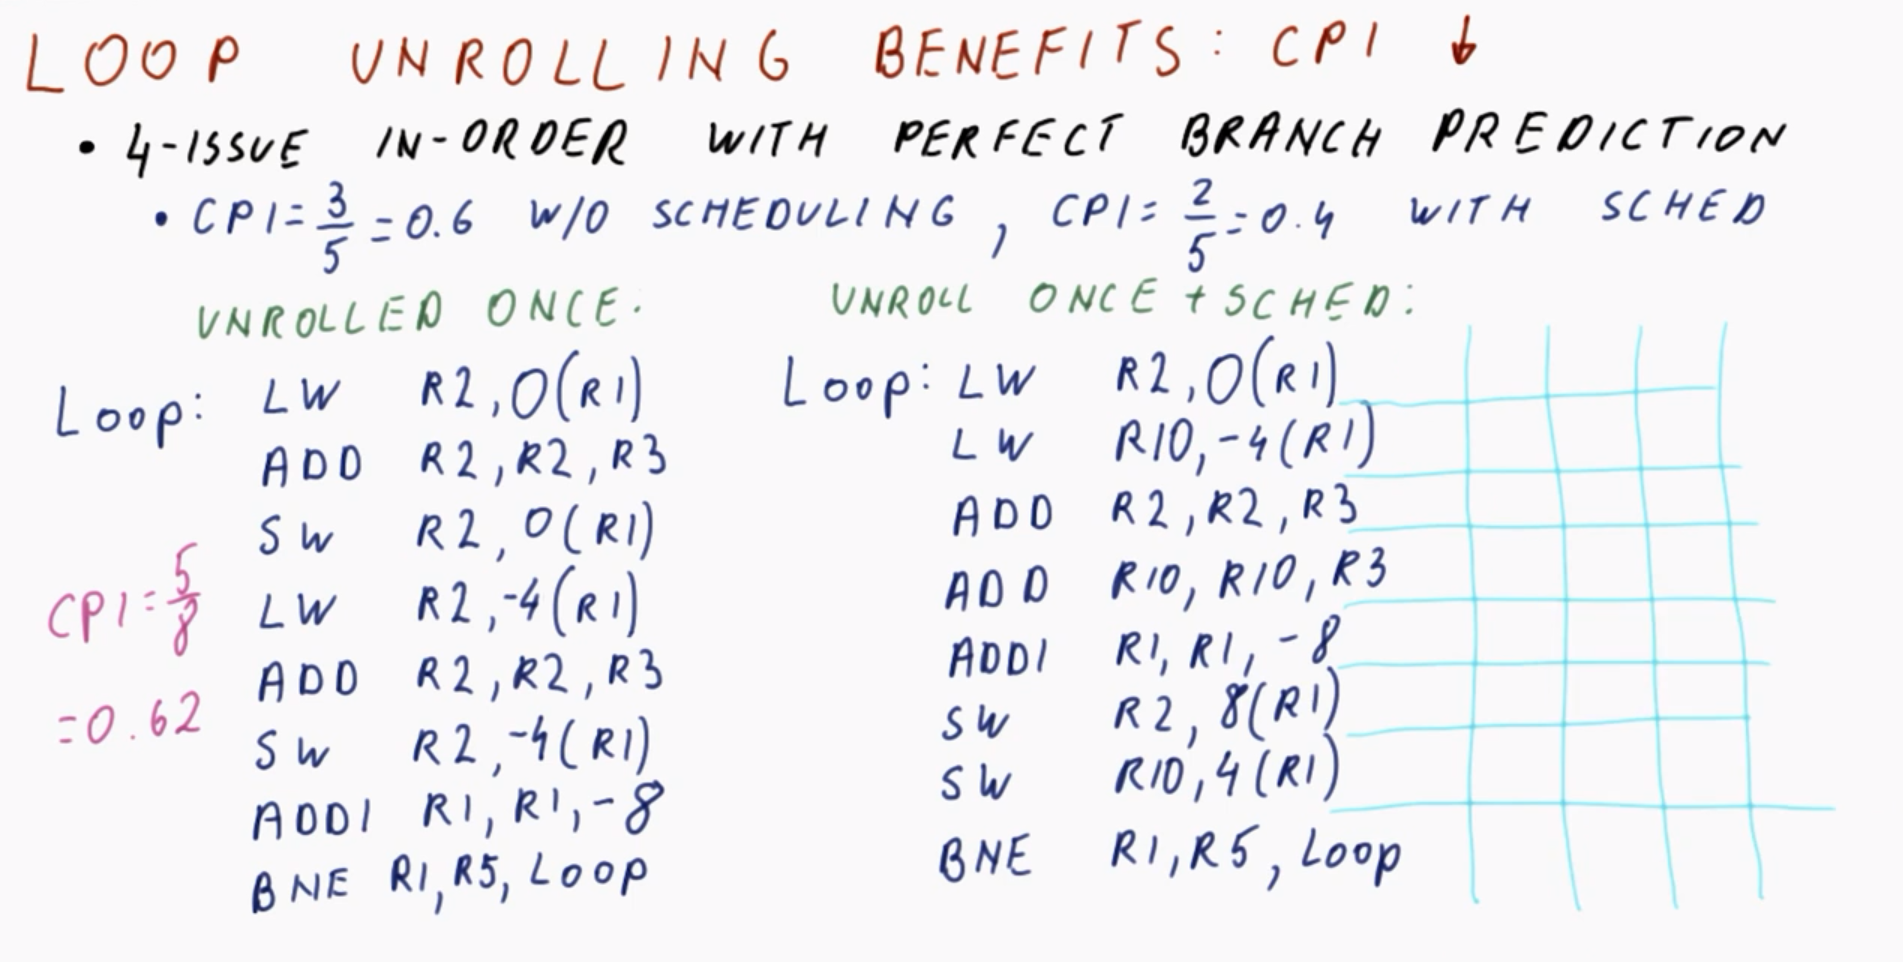 LOOP UNROLLING BENEFITS: CPI ↓
• 4-ISSUE IN-ORDER WITH PERFECT BRANCH PREDICTION
• CPI = 3/5 = 0.6 W/O SCHEDULING, CPI = 2/5 = 0.4 WITH SCHED
UNROLLED ONCE:
Loop: LW R2, 0(R1)
ADD R2, R2, R3
SW R2, 0(R1)
LW R2, -4(R1)
ADD R2, R2, R3
SW R2, -4(R1)
ADDI R1, R1, -8
BNE R1, R5, Loop
CPI = 5/8
= 0.62
UNROLL ONCE + SCHED:
Loop: LW R2, 0(R1)
LW R10, -4(R1)
ADD R2, R2, R3
ADD R10, R10, R3
ADDI R1, R1, -8
SW R2, 8(R1)
SW R10, 4(R1)
BNE R1, R5, Loop